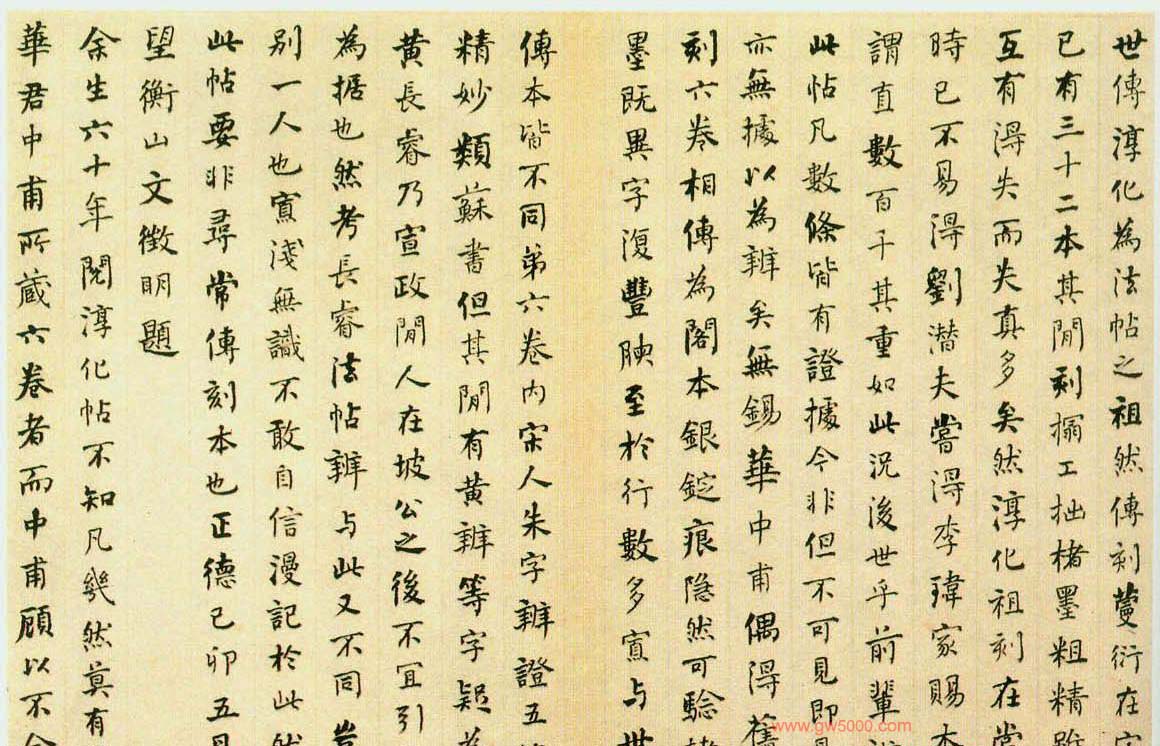 世傳淳化為法帖之祖然傳刻蔓衍在宋
已有三十二本其閒刻搨工拙楮墨粗精
互有淂失而失真多矣然淳化祖刻在當
時已不易淂劉潛夫嘗淂李瑋家賜本
謂直數百千其重如此況後世乎前輩辨
此帖凡數條皆有證據今非但不可見即
亦無據以為辨矣無錫華中甫偶淂舊
刻六卷相傳為閣本銀錠痕隐然可驗
墨既異字復豐腴至於行數多寡与世
傳本皆不同弟六卷内宋人朱字辨證五
精妙類蘇書但其閒有黄辨等字疑為
黄長睿乃宣政閒人在坡公之後不宜引
為据也然考長睿法帖辨与此又不同豈
别一人也寡淺無識不敢自信漫記於此然
此帖要非尋常傳刻本也正德己卯五月
望衡山文徵明題
余生六十年閱淳化帖不知凡幾然莫有
華君中甫所蔵六卷者而中甫顧以不全
www.gw5000.com